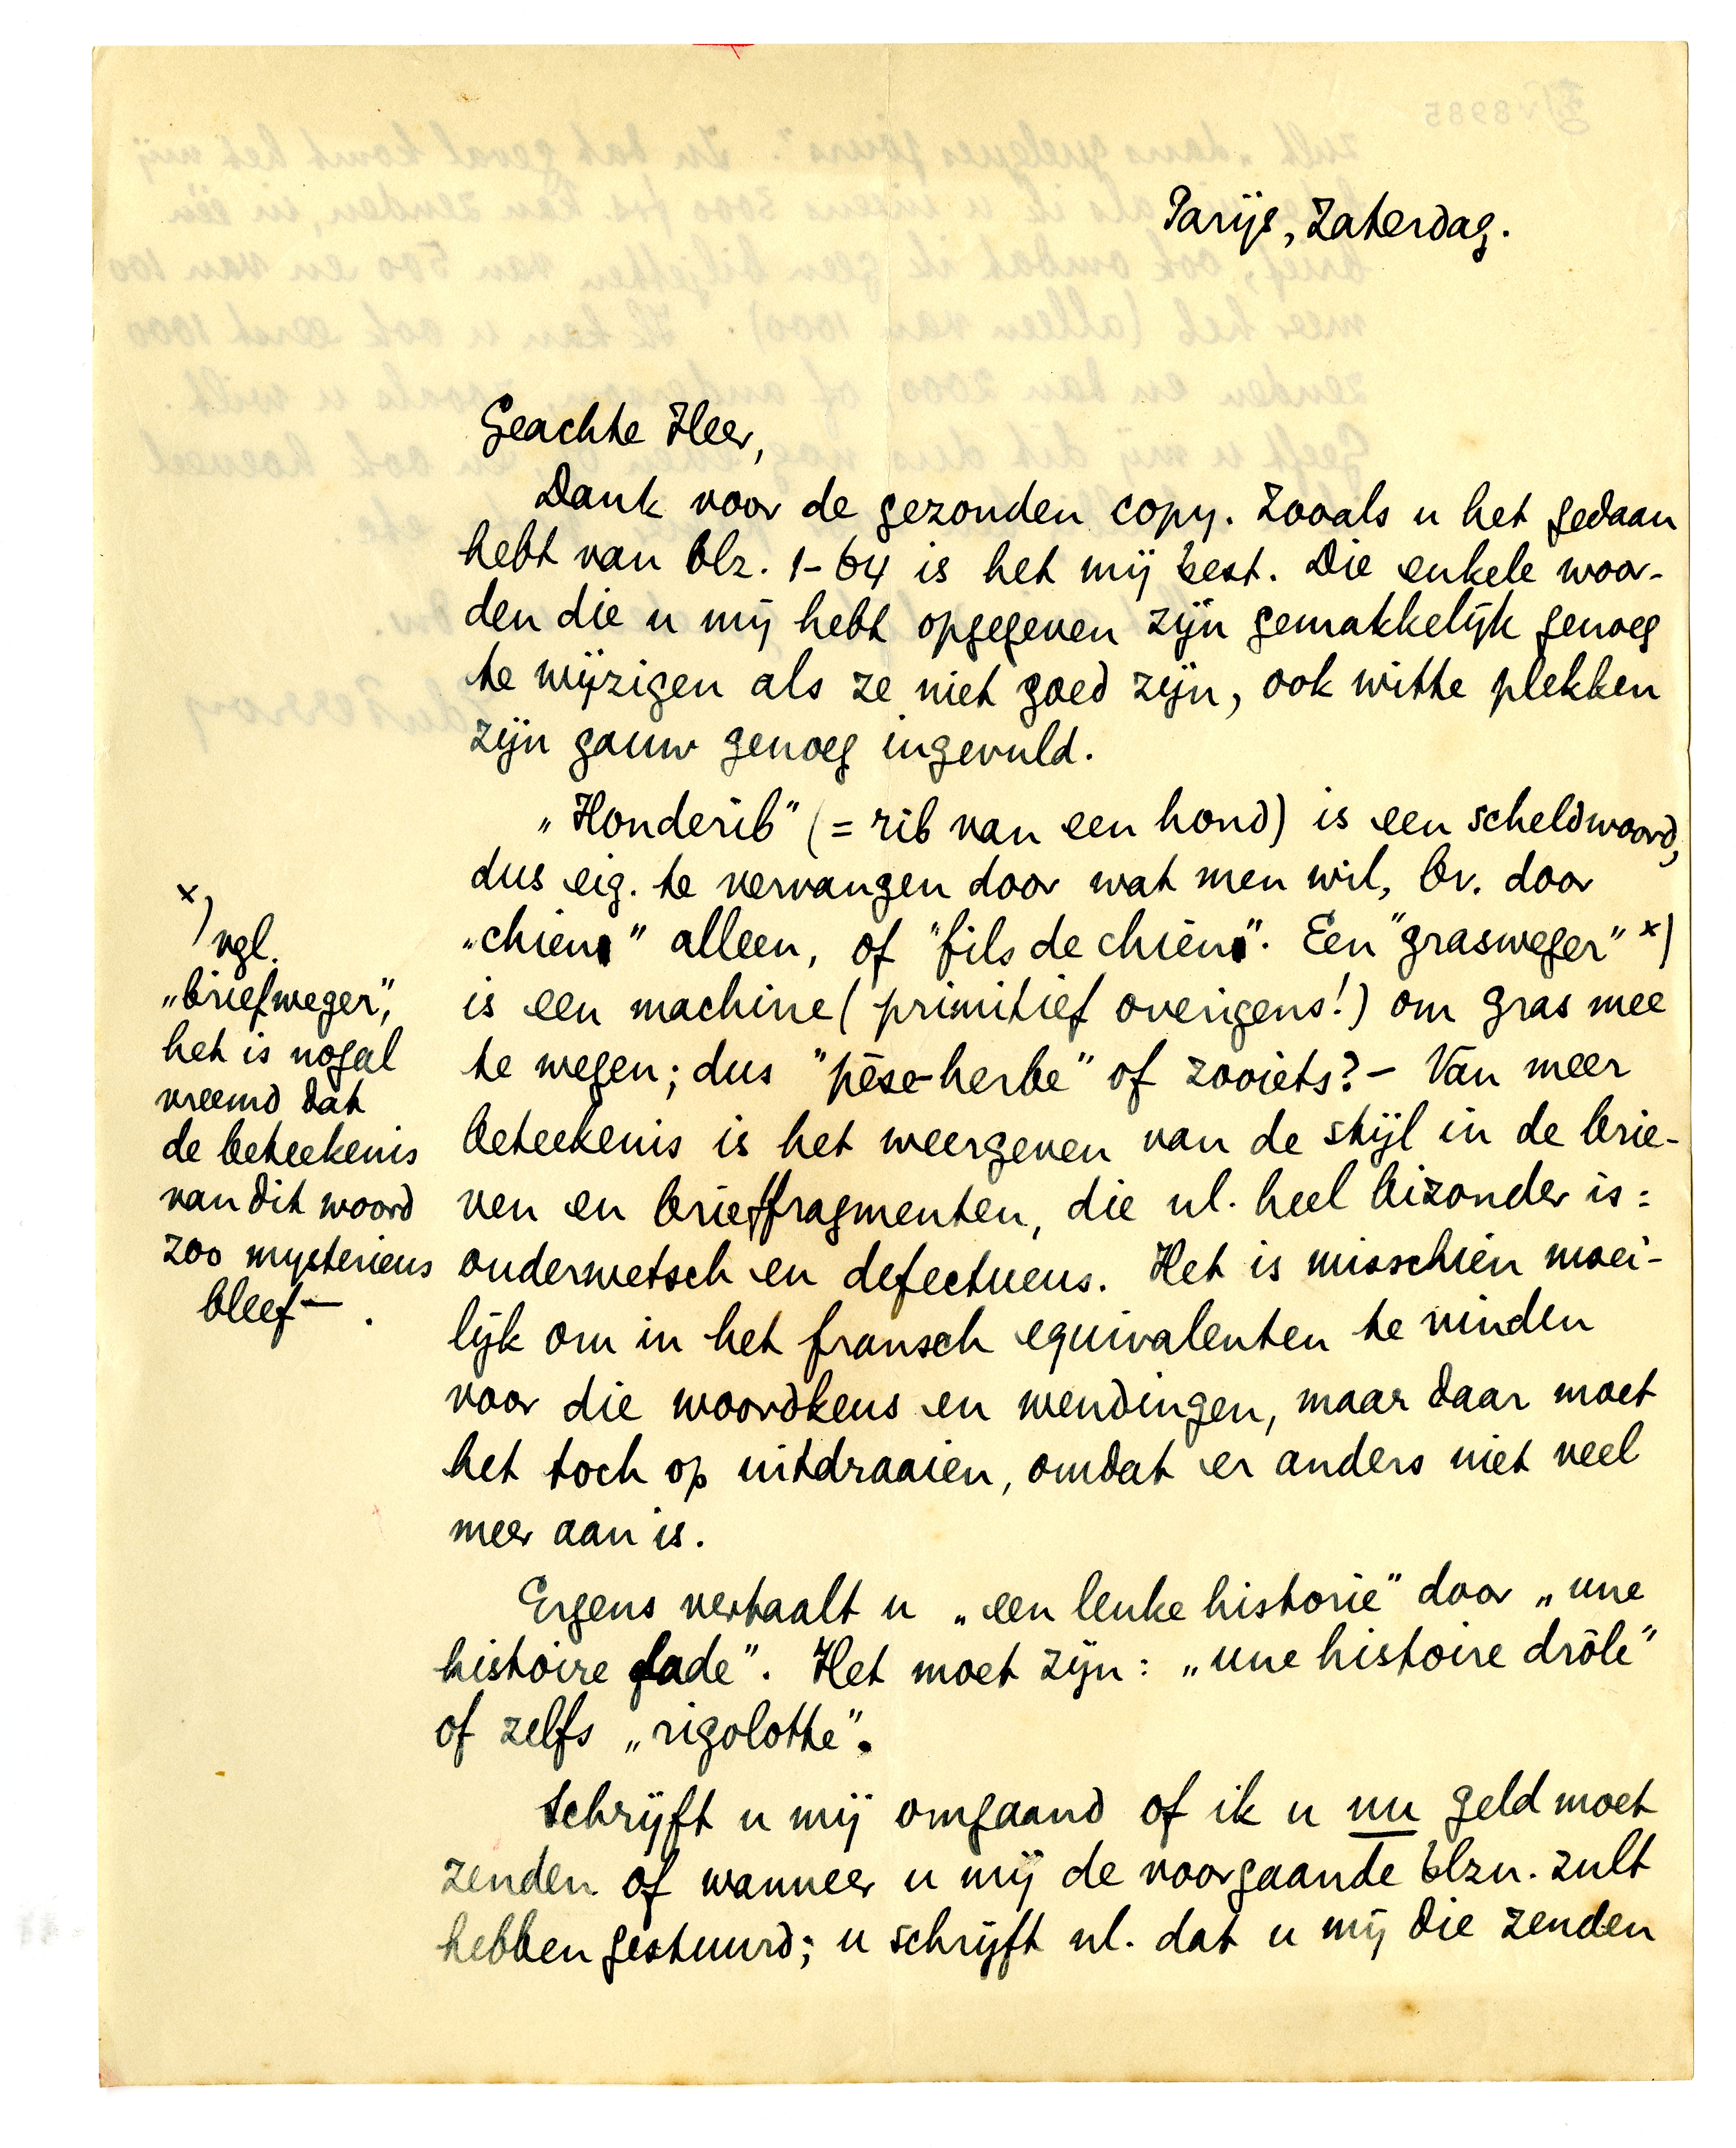 Parijs, Zaterdag.
Geachte Heer,
Dank voor de gezonden copy. Zooals u het gedaan
hebt van blz. 1-64 is het mij best. Die enkele woor-
den die u mij hebt opgegeven zijn gemakkelijk genoeg
te wijzigen als ze niet goed zijn, ook witte plekken
zijn gauw genoeg ingevuld.
„Honderib" (= rib van een hond) is een scheldwoord,
dus eig. te vervangen door wat men wil, bv. door
„chien" alleen, of "fils de chien". Een "grasweger" x)
is een machine (primitief overigens!) om gras mee
te wegen; dus "pèse-herbe" of zooiets? — Van meer
beteekenis is het weergeven van de stijl in de brie-
ven en brieffragmenten, die nl. heel bizonder is:
ouderwetsch en defectueus. Het is misschien moei-
lijk om in het fransch equivalenten te vinden
voor die woordkeus en wendingen, maar daar moet
het toch op uitdraaien, omdat er anders niet veel
meer aan is.
Ergens vertaalt u „een leuke historie" door „une
histoire fade". Het moet zijn: „une histoire drôle"
of zelfs „rigolotte".
Schrijft u mij omgaand of ik u nu geld moet
zenden of wanneer u mij de voorgaande blzn. zult
hebben gestuurd; u schrijft nl. dat u mij die zenden
x)
vgl.
„briefweger",
het is nogal
vreemd dat
de beteekenis
van dit woord
zoo mysterieus
bleef — .